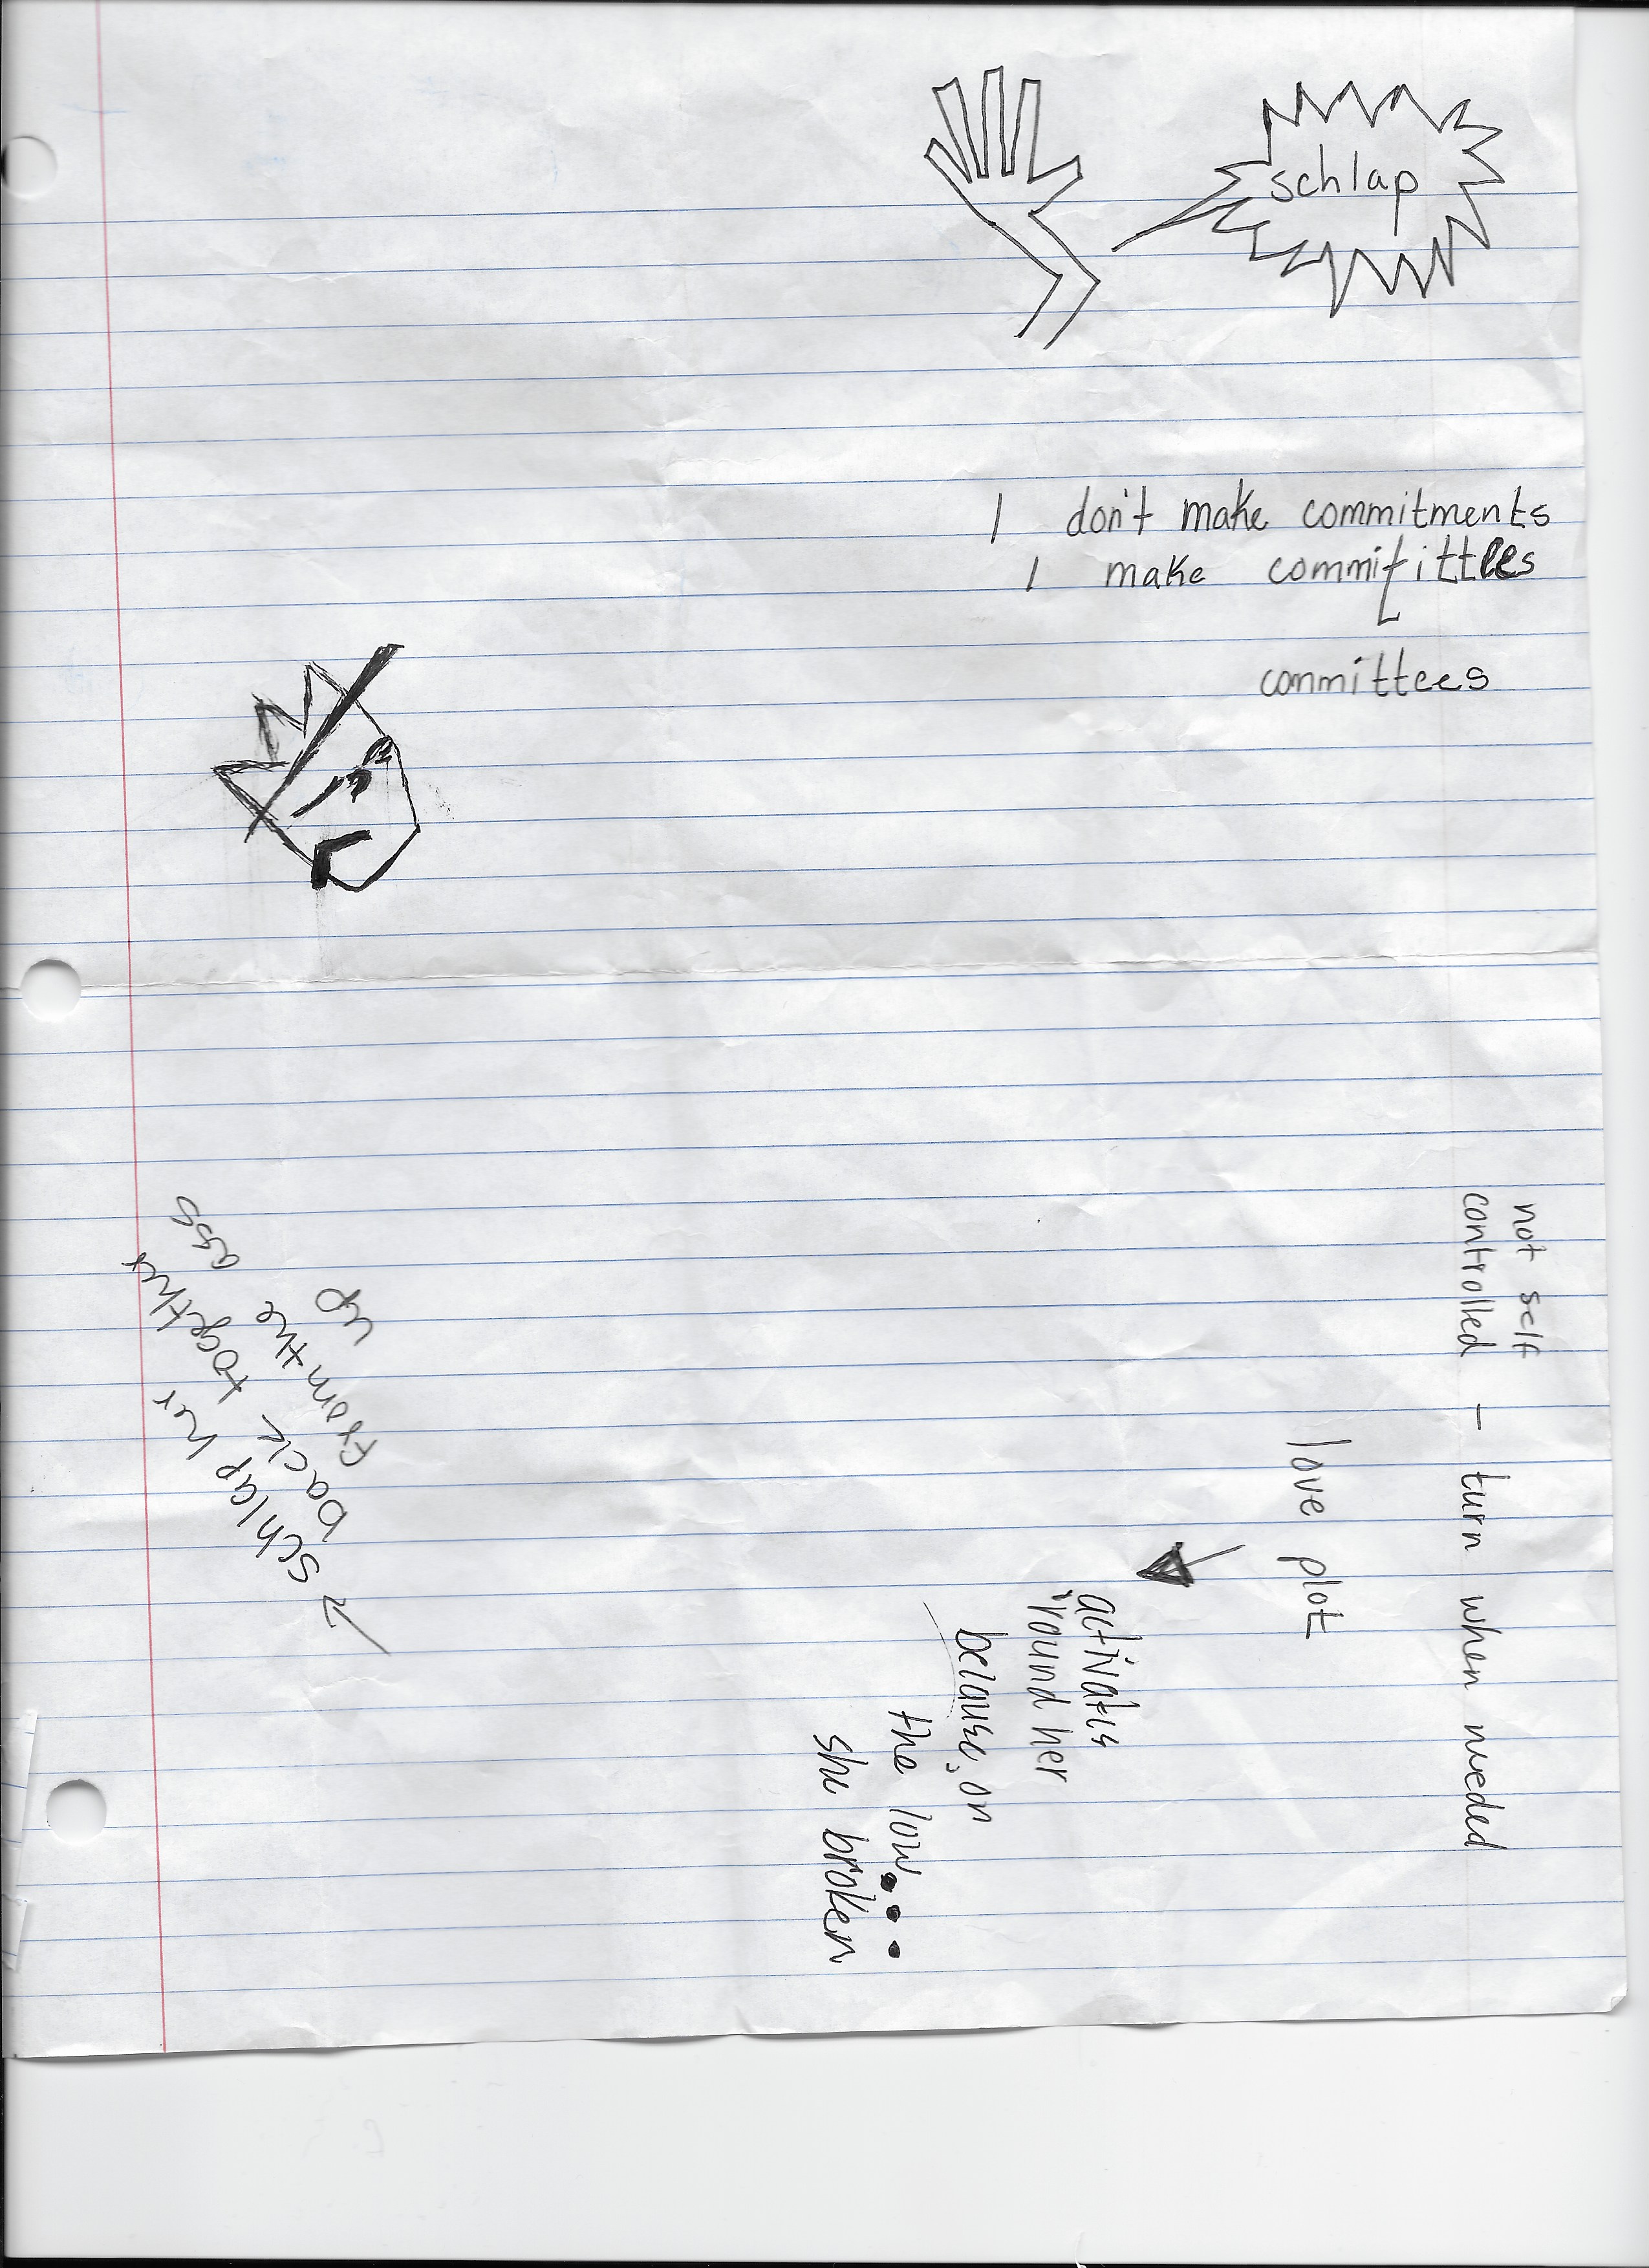 schlap
I don't make commitments
I make
committees
not self
controlled – turn when needed
love plot
activates
'round her
because, on
the low...
she broken
schlap her
back together
from the ass
up